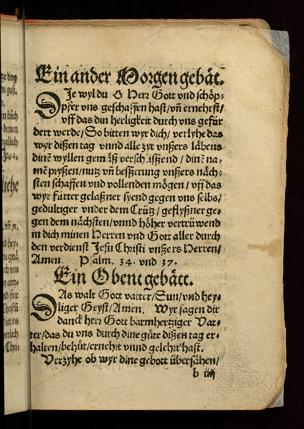 Ein ander Morgen gebät.
DJe wyl du O Herr Gott vnd schöp-
pfer vns geschaffen hast/vñ ernehrst/
vff das din herligkeit durch vns gefür
dert werde/So bitten wyr dich/verlyhe das
wyr dißen tag vnnd alle zyt vnßers läbens
dinē wyllen gemäß
die
mē pryßen/nutz vñ beßserung vnßers näch-
sten schaffen vnd vollenden mögen/vff das
wyr fürter gelaßner syend gegen vns selbs/
gedultiger vnder dem Crütz/geflyßner ge-
gen dem nächsten/vnnd höher vertrüwend
in dich minen Herren vnd Gott alle durch
den verdienst Jesu Christi vnßers Herren/
Amen. Psalm. 34. vnd 37.
Ein Obent gebätt.
DAs walt Gott vatter/Sun/vnd hey-
liger Geyst/Amen. Wyr sagen dir
danck herr Gott barmhertziger Vat-
ter/das du vns durch dine güte dißen tag er-
halten/behüt/ernehrt vnnd gelehrt hast.
Verzyhe ob wyr dine gebott übersähen/
b iiij